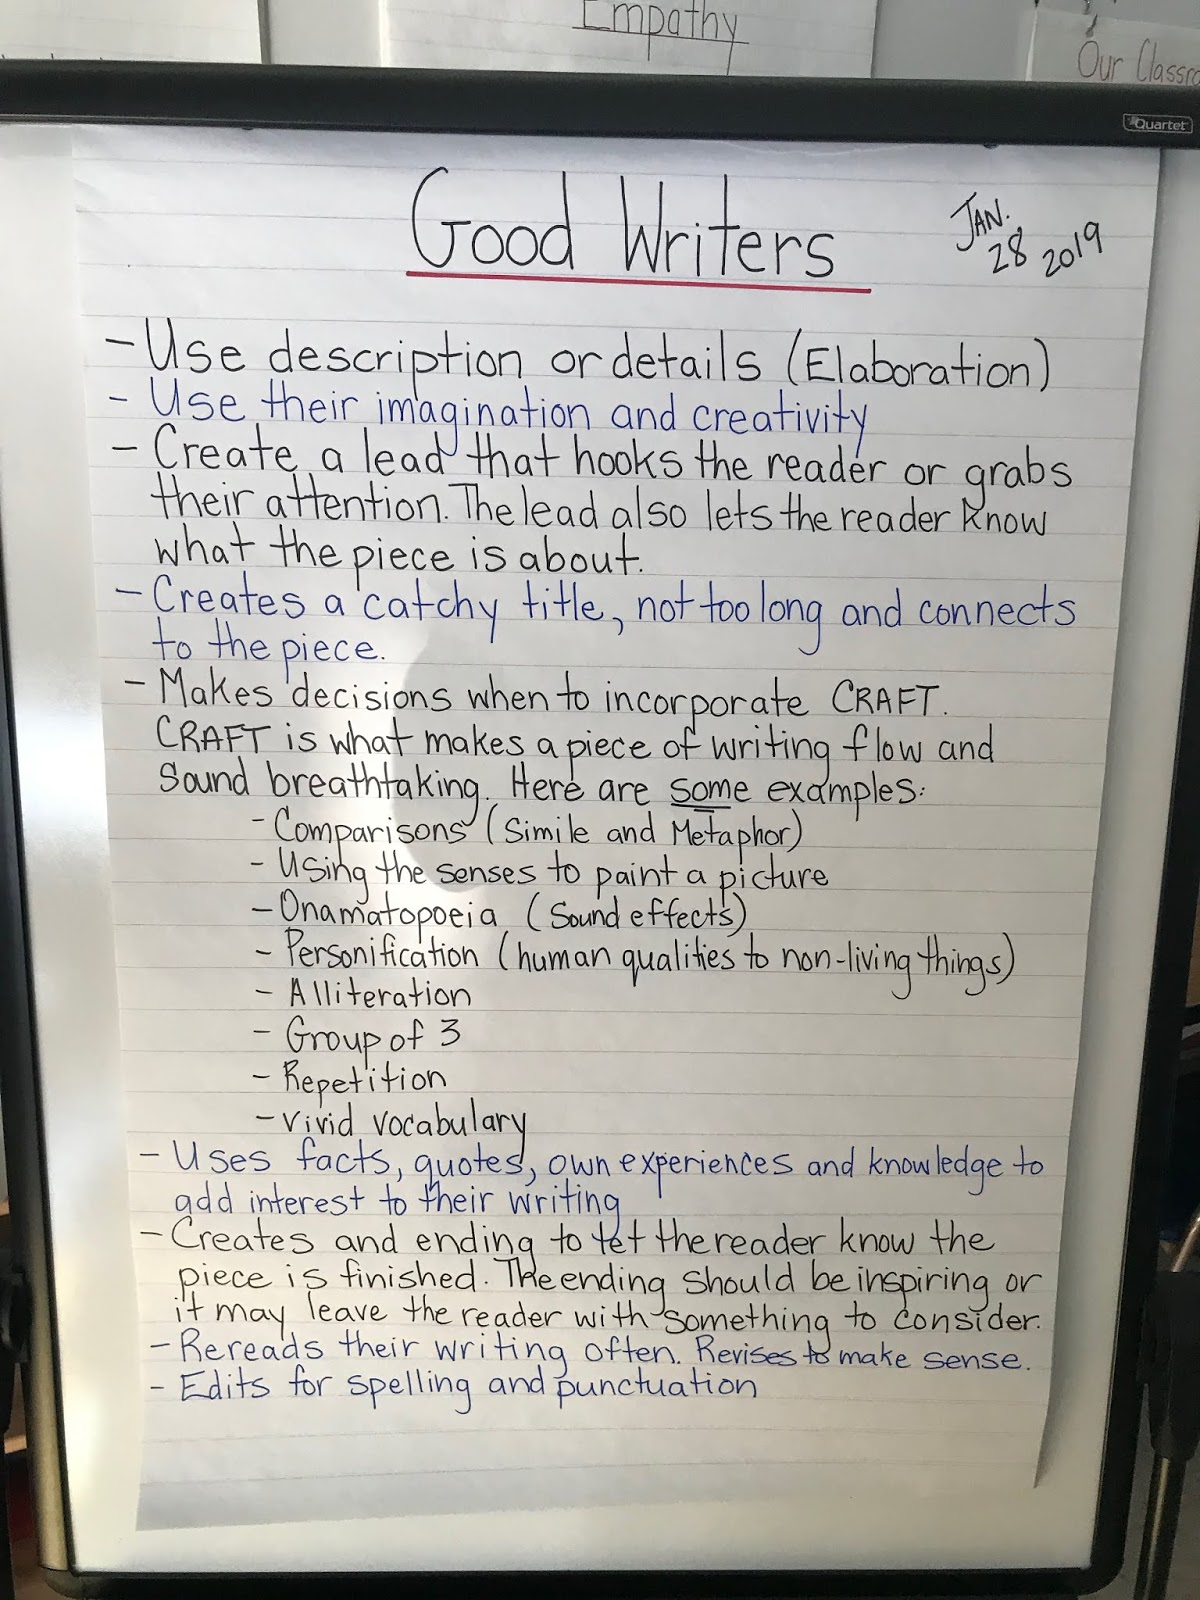 Empathy
Our Classro
Quartet
Good Writers
JAN. 28 2019
- Use description or details (Elaboration)
- Use their imagination and creativity
- Create a lead that hooks the reader or grabs
their attention. The lead also lets the reader know
what the piece is about.
- Creates a catchy title, not too long and connects
to the piece.
- Makes decisions when to incorporate CRAFT.
CRAFT is what makes a piece of writing flow and
sound breathtaking. Here are some examples:
- Comparisons (Simile and Metaphor)
- Using the senses to paint a picture
- Onamatopoeia (Sound effects)
- Personification (human qualities to non-living things)
- Alliteration
- Group of 3
- Repetition
- Vivid vocabulary
- Uses facts, quotes, own experiences and knowledge to
add interest to their writing
- Creates and ending to let the reader know the
piece is finished. The ending should be inspiring or
it may leave the reader with something to consider.
- Rereads their writing often. Revises to make sense.
- Edits for spelling and punctuation